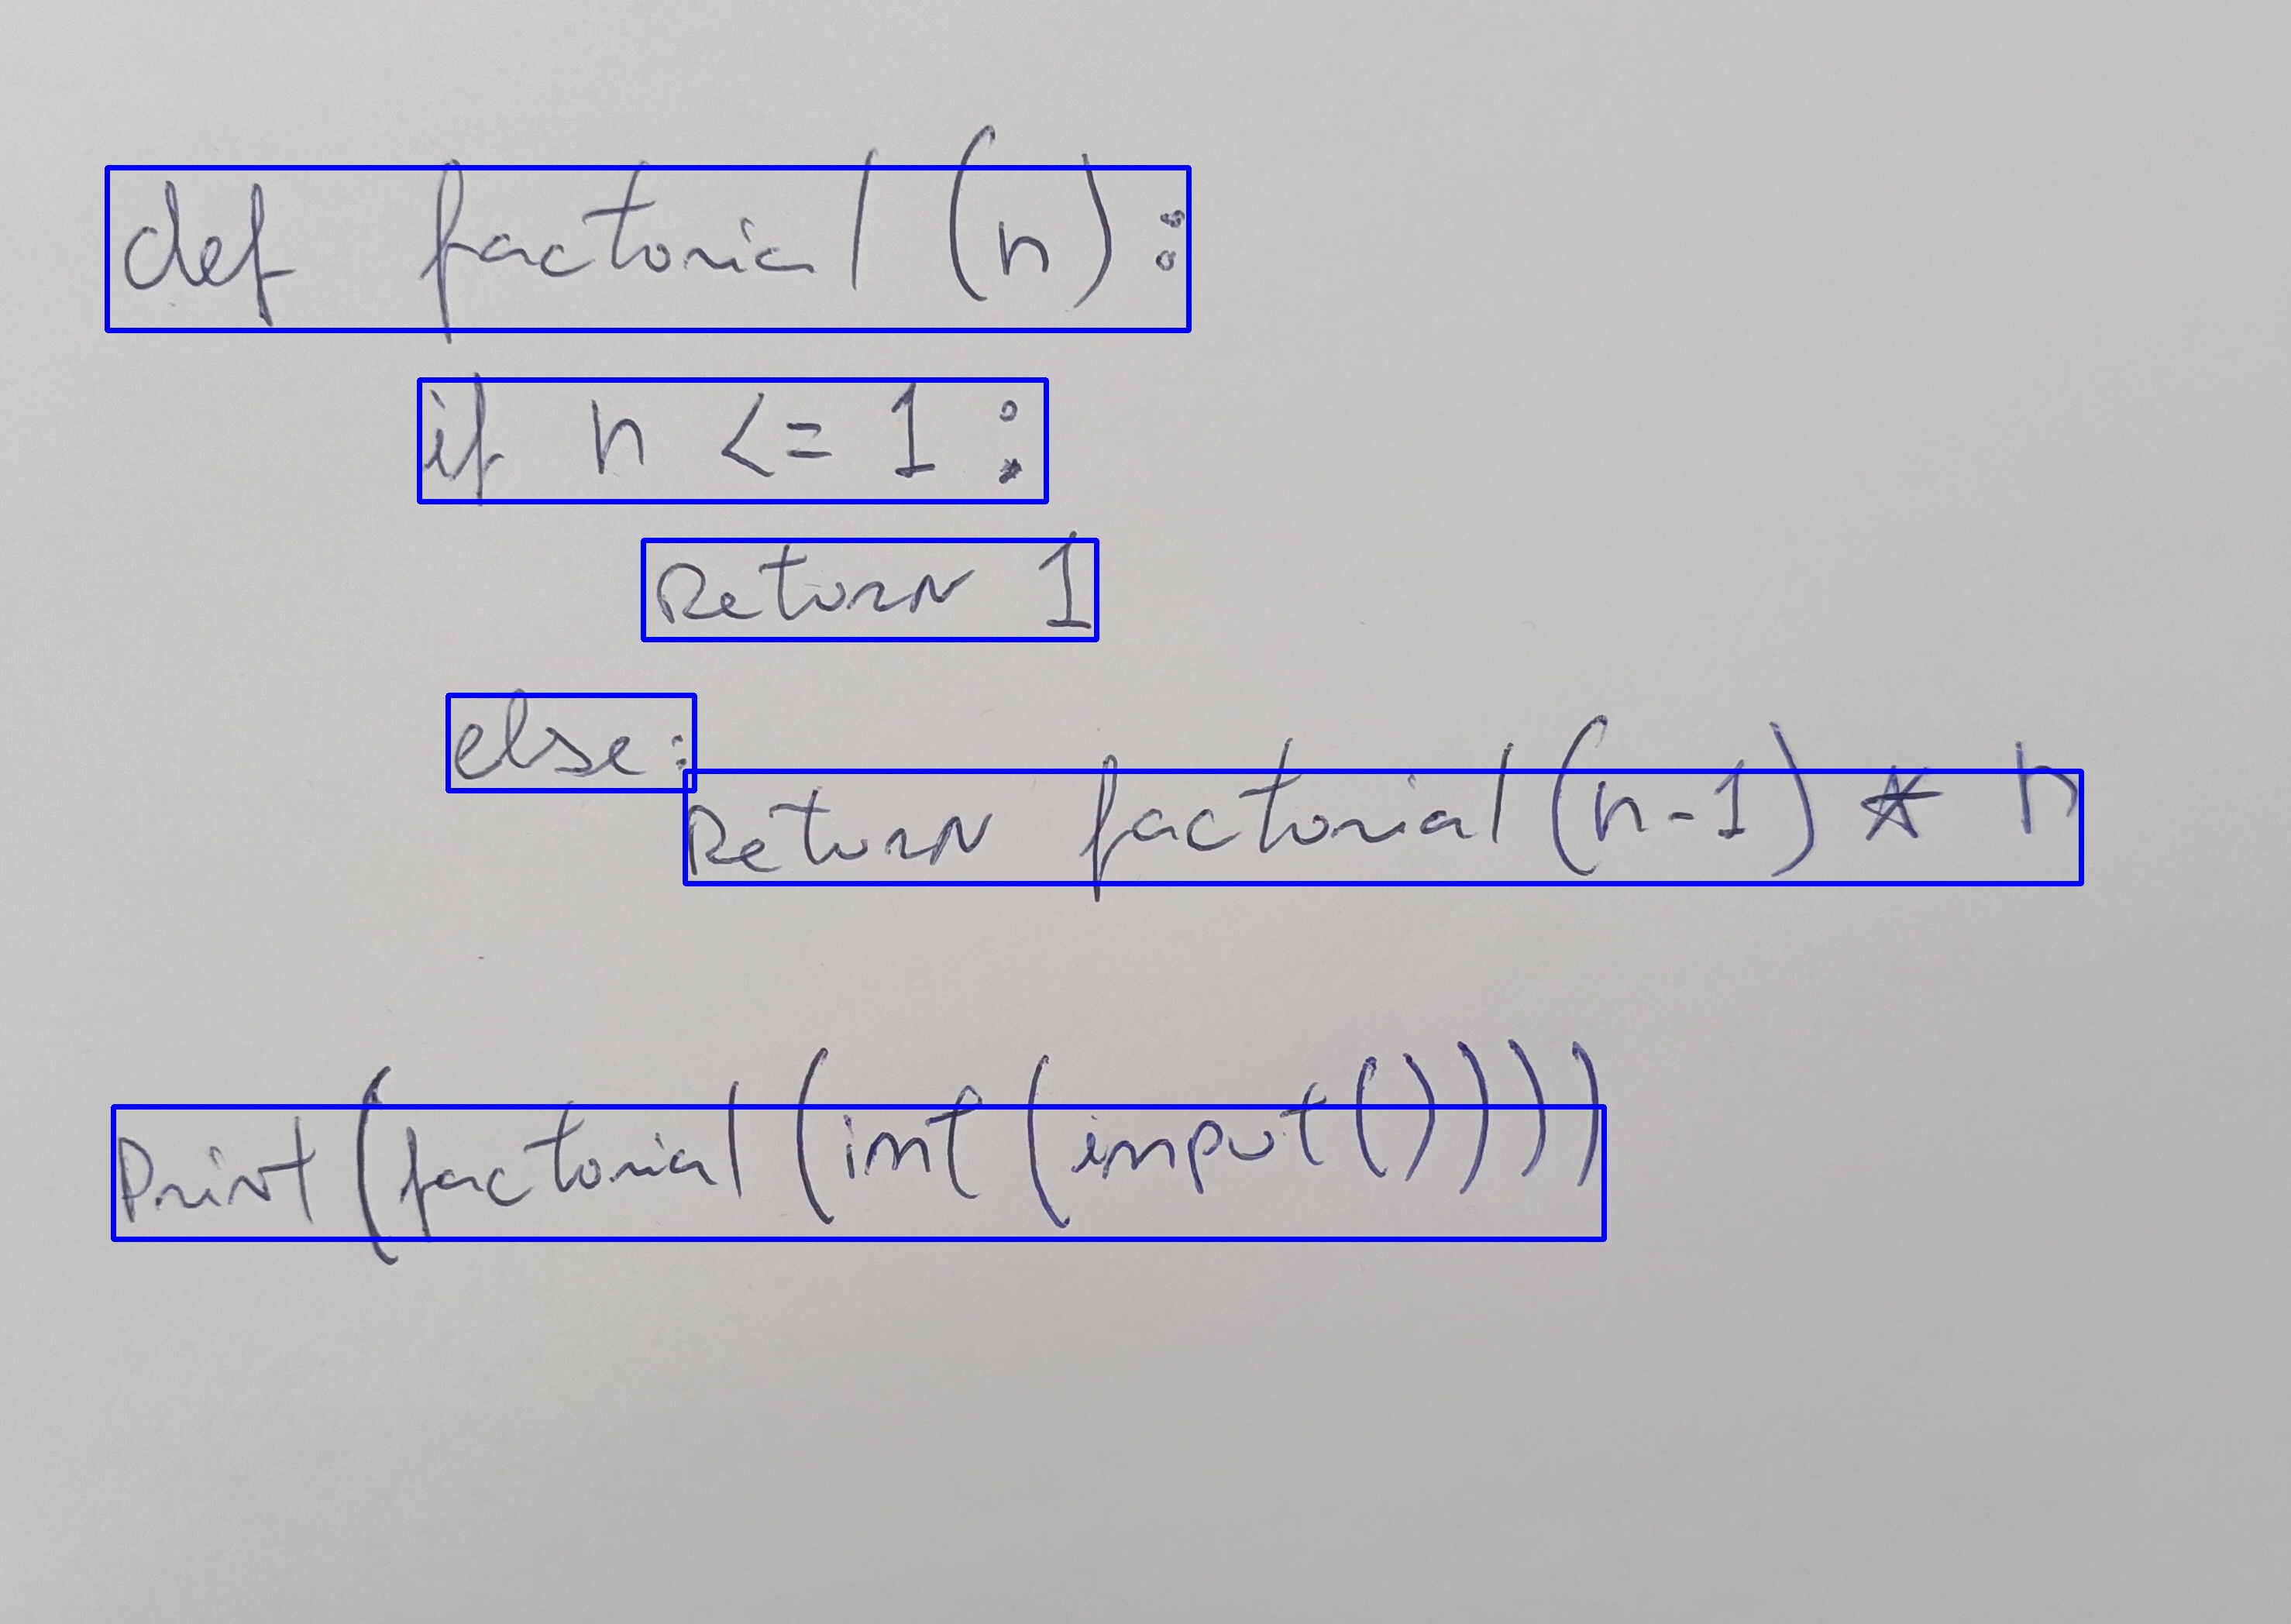 def factorial (n):
if n <= 1 :
Return 1
else:
Return factorial (n-1) * n
Print (factorial (int (input ())))